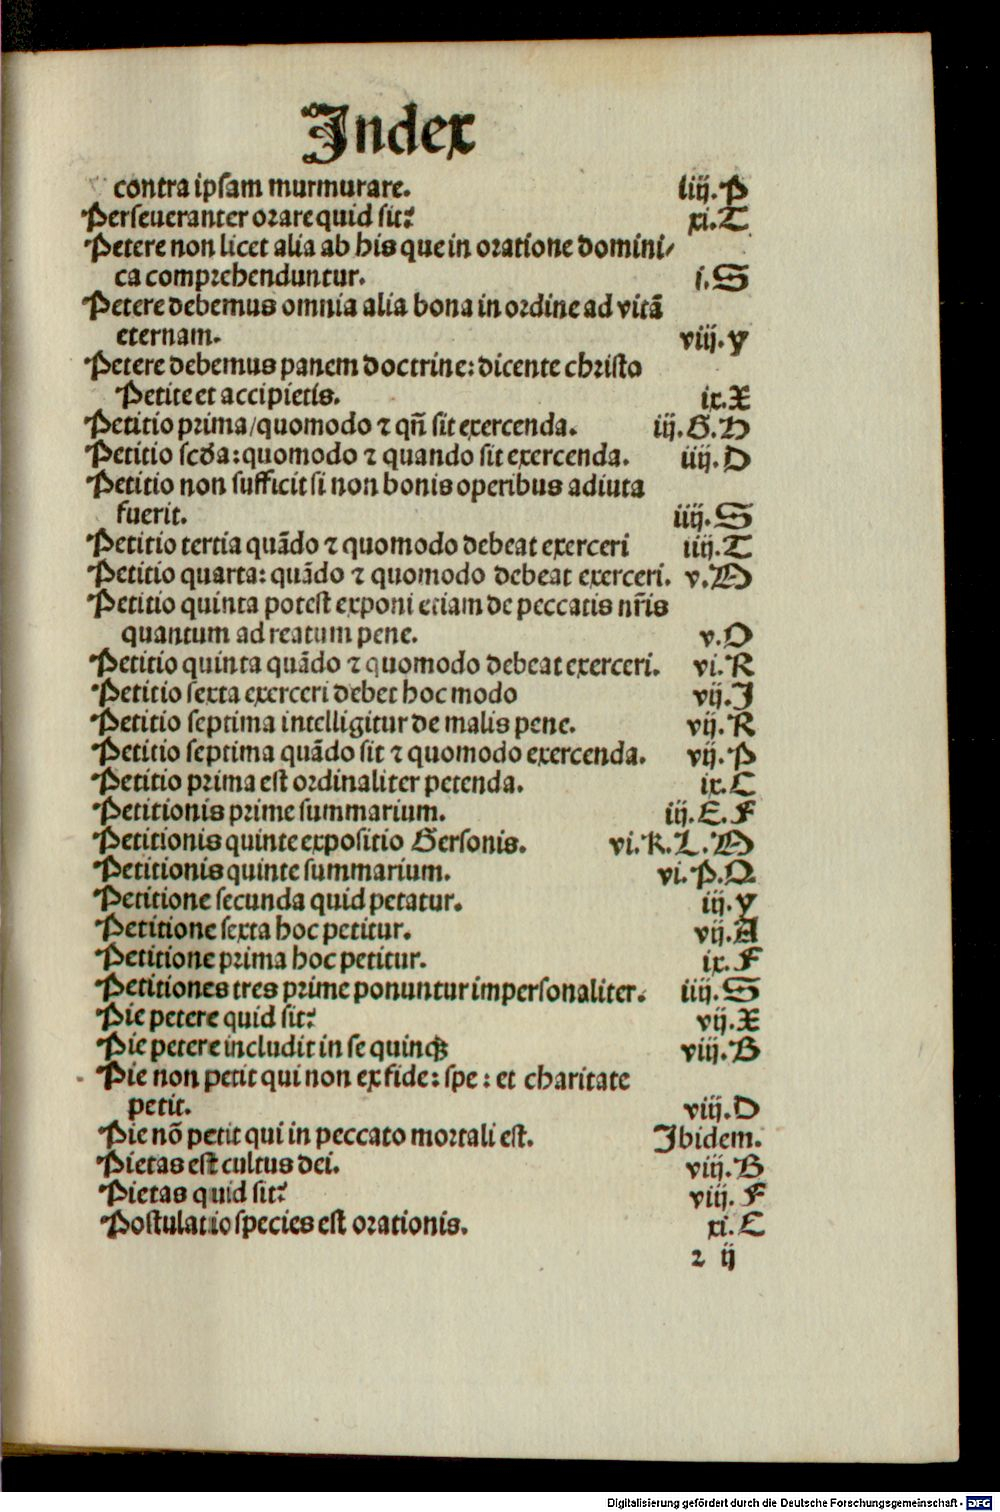 Index
contra ipsam murmurare. liij.P
Perseueranter orare quid sit? xi.T
Petere non licet alia ab his que in oratione domini/
ca comprehenduntur. i.S
Petere debemus omnia alia bona in ordine ad vitā
eternam. viij.Y
Petere debemus panem doctrine: dicente christo
Petite et accipietis. ix.X
Petitio prima/quomodo ⁊ qñ sit exercenda. iij.G.H
Petitio scđa: quomodo ⁊ quando sit exercenda. iiij.D
Petitio non sufficit si non bonis operibus adiuta
fuerit. iiij.S
Petitio tertia quādo ⁊ quomodo debeat exerceri iiij.T
Petitio quarta: quādo ⁊ quomodo debeat exerceri. v.M
Petitio quinta potest exponi etiam de peccatis nr̄is
quantum ad reatum pene. v.O
Petitio quinta quādo ⁊ quomodo debeat exerceri. vi.R
Petitio sexta exerceri debet hoc modo vij.I
Petitio septima intelligitur de malis pene. vij.R
Petitio septima quādo sit ⁊ quomodo exercenda. vij.P
Petitio prima est ordinaliter petenda. ix.C
Petitionis prime summarium. iij.E.F
Petitionis quinte expositio Gersonis. vi.K.L.M
Petitionis quinte summarium. vi.P.Q
Petitione secunda quid petatur. iij.Y
Petitione sexta hoc petitur. vij.A
Petitione prima hoc petitur. ix.F
Petitiones tres prime ponuntur impersonaliter. iiij.S
Pie petere quid sit? vij.X
Pie petere includit in se quinqȝ viij.B
Pie non petit qui non ex fide: spe: et charitate
petit. viij.D
Pie nō petit qui in peccato mortali est. Ibidem.
Pietas est cultus dei. viij.B
Pietas quid sit? viij.F
Postulatio species est orationis. xi.C
2 ij
Digitalisierung gefördert durch die Deutsche Forschungsgemeinschaft - DFG